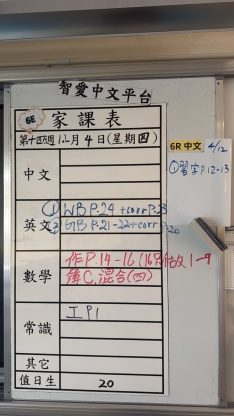 智愛中文平台
6E 家課表
第十四週 12月4日(星期四)
中文
英文
① WB P.24 + corr P.23
② GB P.21-22 + corr P.20
數學
作P.14-16(16只做1-9
簿C,混合(四)
常識
工P1
其它
值日生 20
6R 中文 4/12
①習字P.12-13